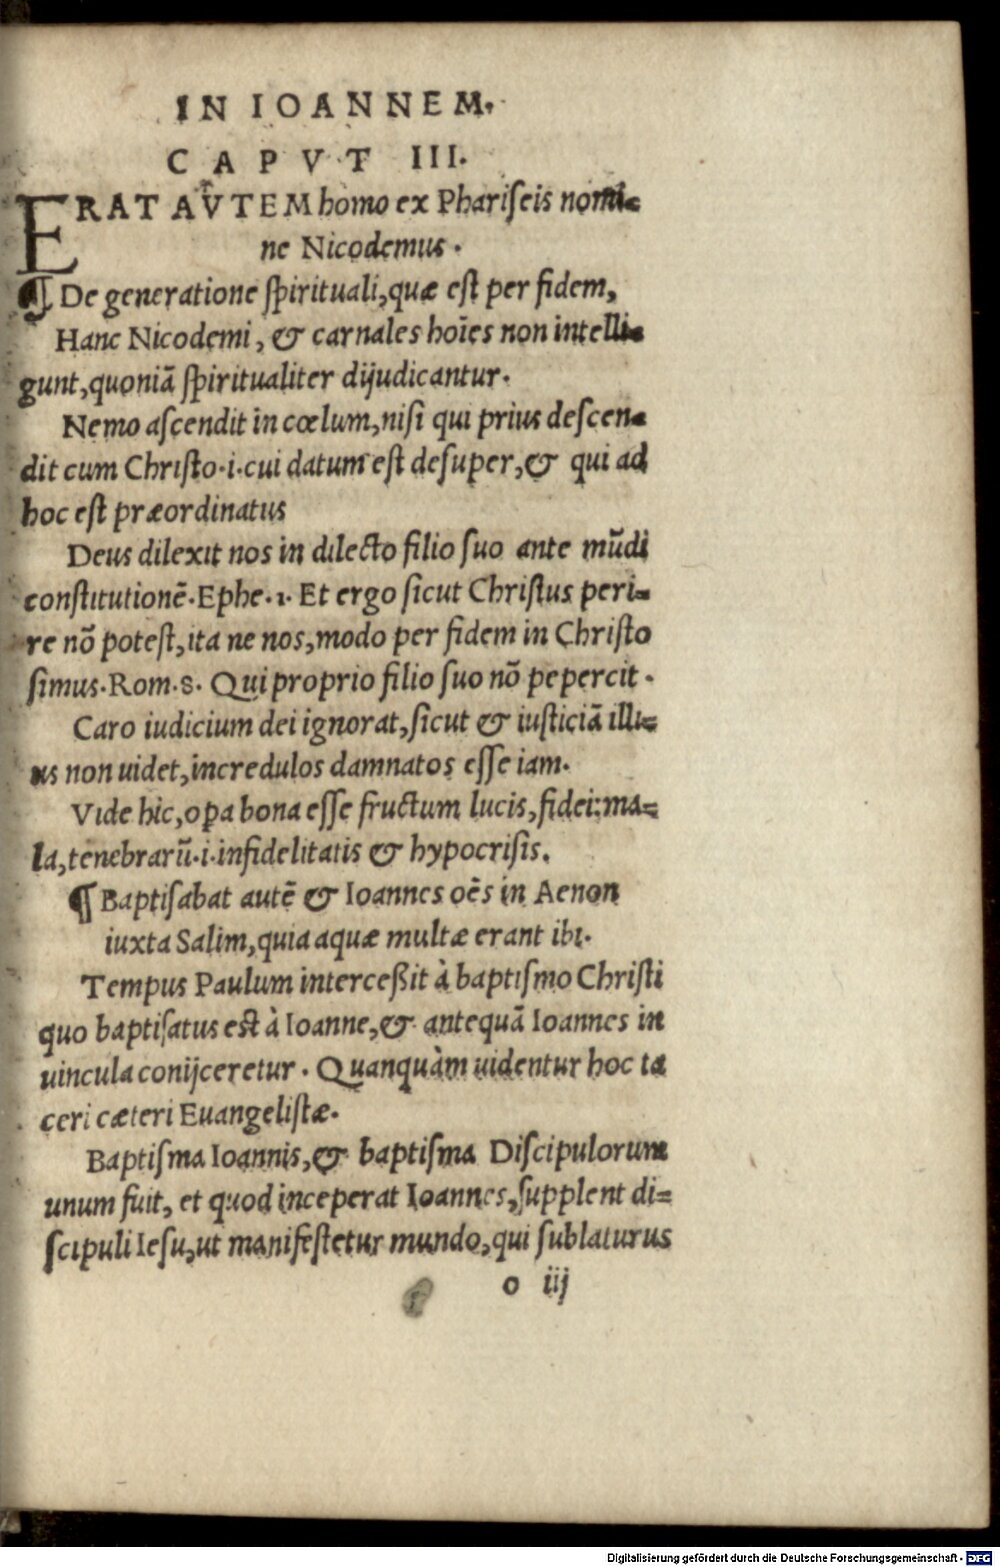 IN IOANNEM.
CAPVT III.
ERAT AVTEM homo ex Phariseis nomi=
ne Nicodemus.
¶ De generatione spirituali, quæ est per fidem,
Hanc Nicodemi, & carnales hoīes non intelli=
gunt, quoniā spiritualiter dijudicantur.
Nemo ascendit in cœlum, nisi qui prius descen=
dit cum Christo .i. cui datum est desuper, & qui ad
hoc est præordinatus
Deus dilexit nos in dilecto filio suo ante mūdi
constitutionē. Ephe. 1. Et ergo sicut Christus peri=
re nō potest, ita ne nos, modo per fidem in Christo
simus. Rom. 8. Qui proprio filio suo nō pepercit.
Caro iudicium dei ignorat, sicut & iusticiā illi=
us non uidet, incredulos damnatos esse iam.
Vide hic, opa bona esse fructum lucis, fidei: ma=
la, tenebrarū .i. infidelitatis & hypocrisis.
¶ Baptisabat autē & Ioannes oēs in Aenon
iuxta Salim, quia aquæ multæ erant ibi.
Tempus Paulum interceßit à baptismo Christi
quo baptisatus est à Ioanne, & antequā Ioannes in
uincula conijceretur. Quanquàm uidentur hoc ta
ceri cæteri Euangelistæ.
Baptisma Ioannis, & baptisma Discipulorum
unum fuit, et quod inceperat Ioannes, supplent di=
scipuli Iesu, ut manifestetur mundo, qui sublaturus
o iij
Digitalisierung gefördert durch die Deutsche Forschungsgemeinschaft - DFG